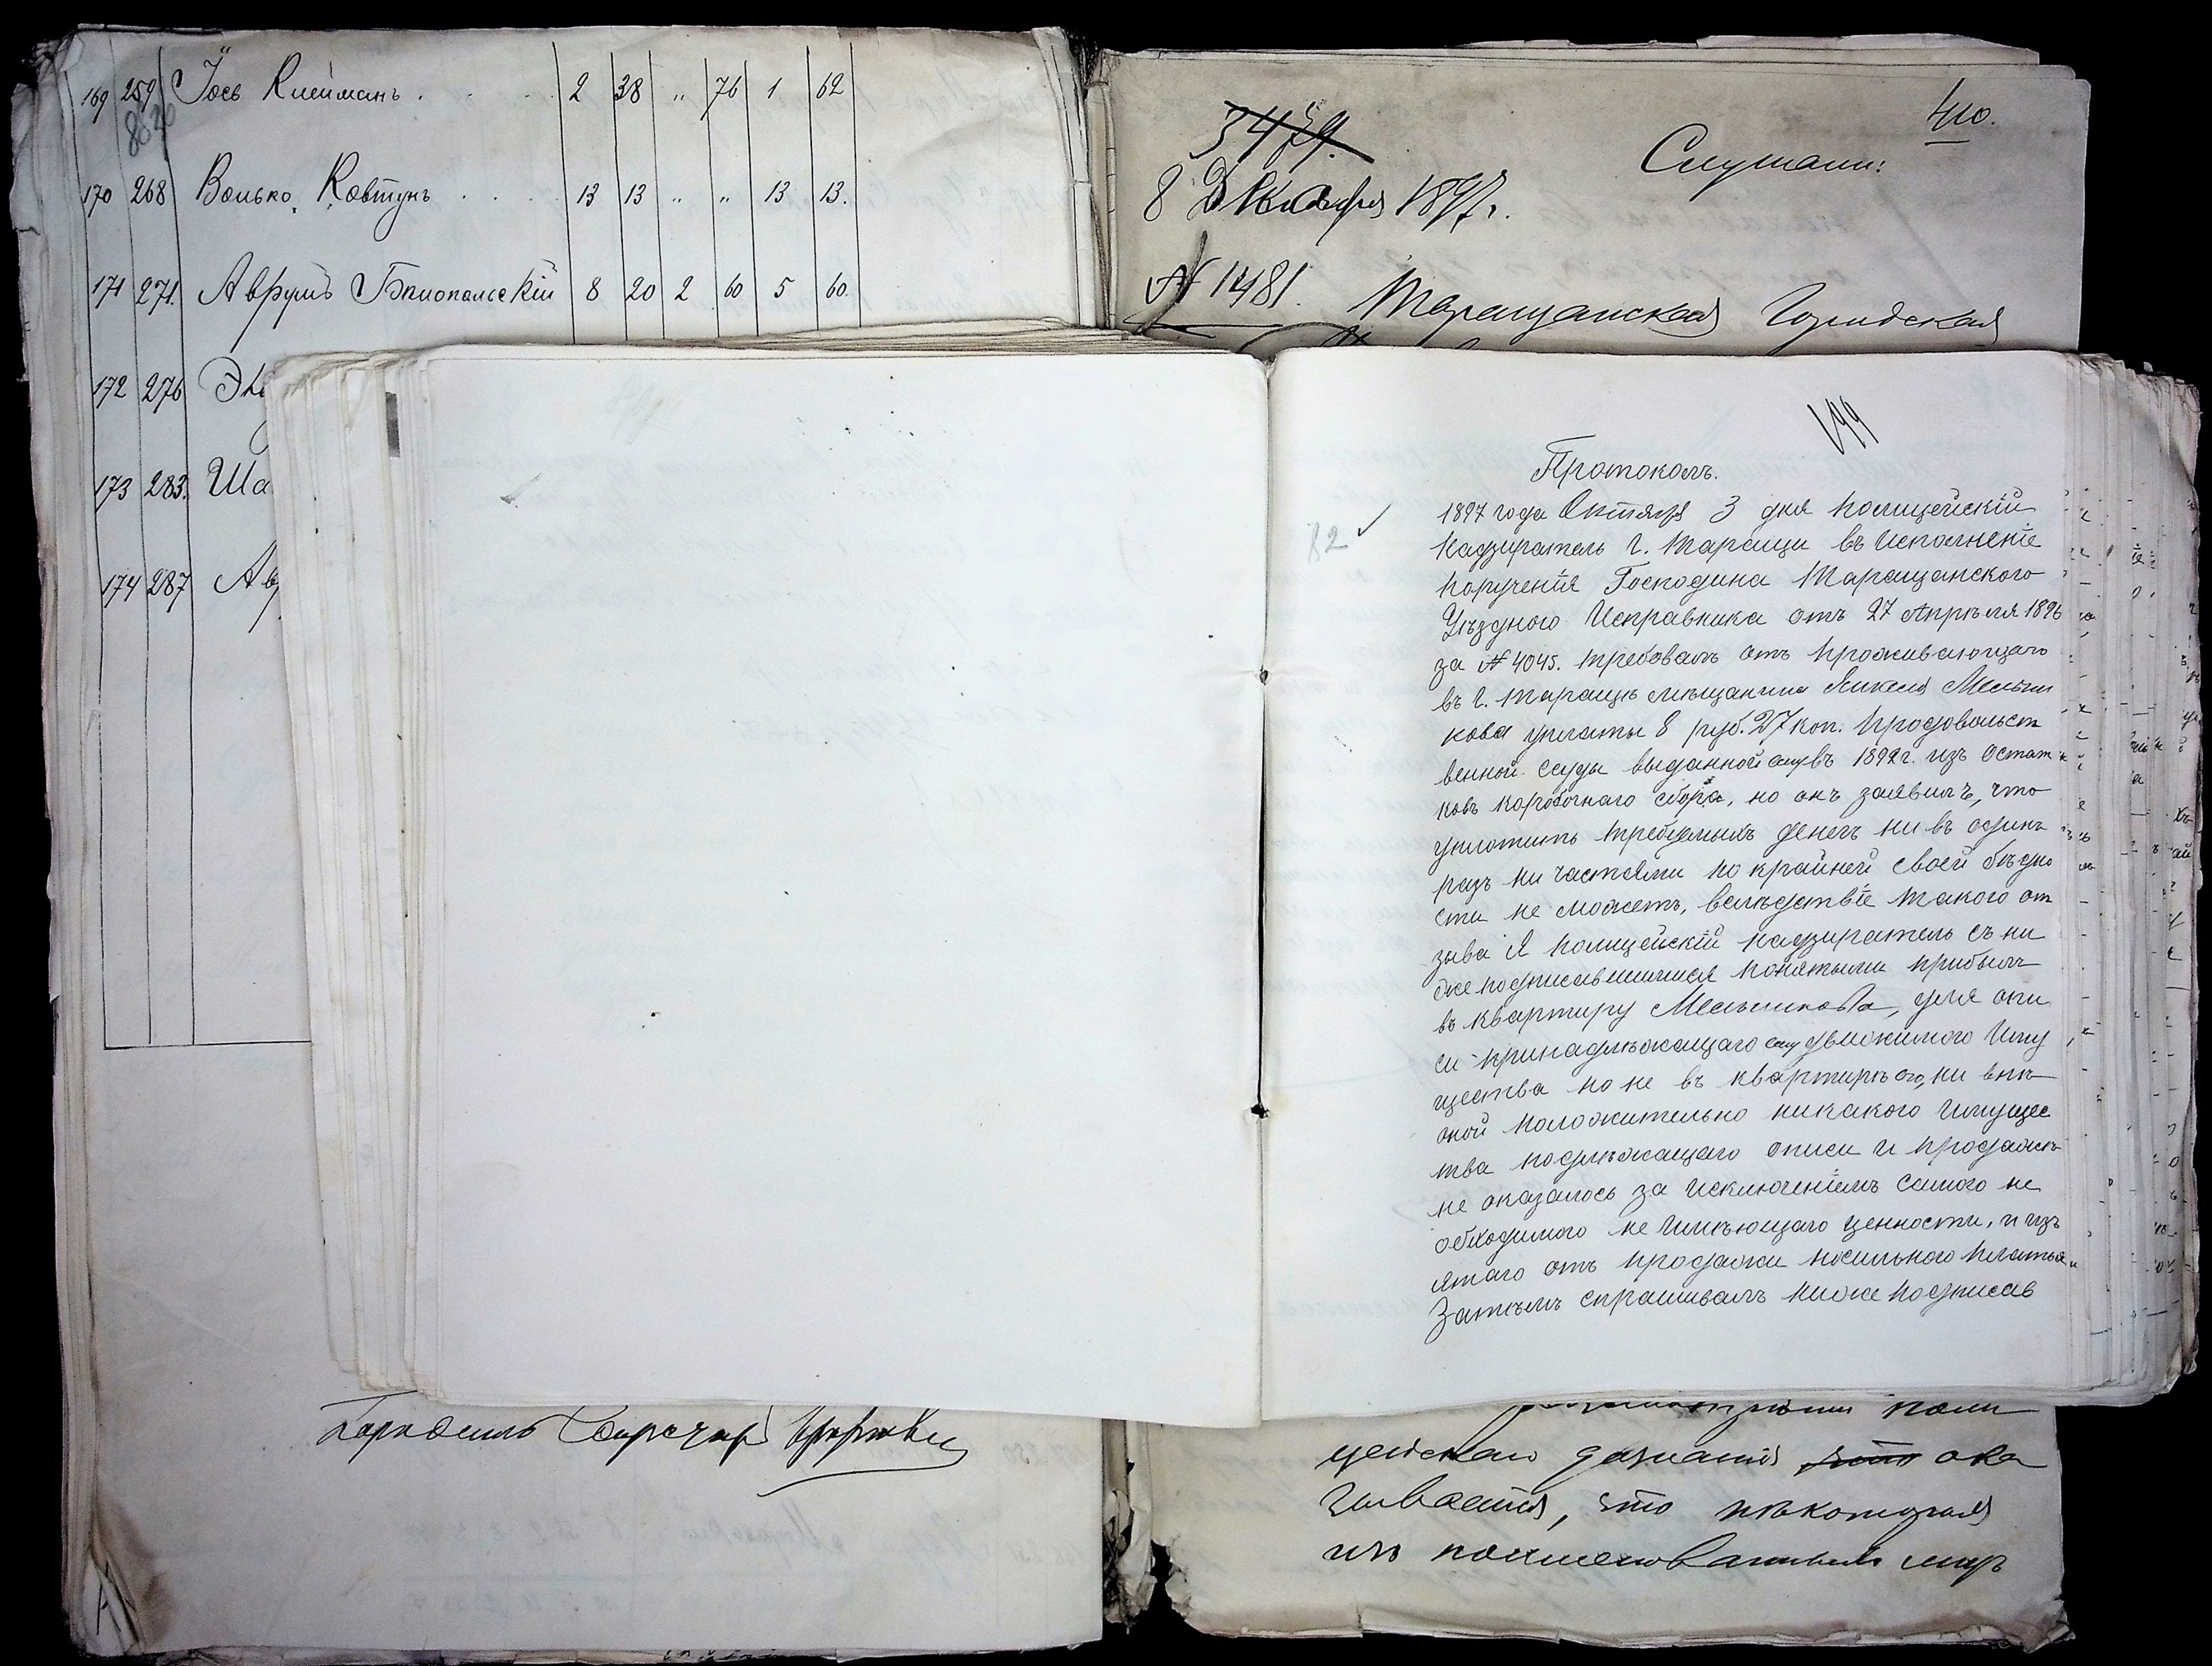 169 259 Іось Клейманъ . . . 2 38 " 76 1 62
170 268 Волько Ковтунъ . . . 13 13 " " 13 13.
171 271. Аврумъ Бялопольскій 8 20 2 60 5 60.
172 276
173 283. Ша
174 287 Ав
410.
Слушали:
8 Декабря 1897 г.
№ 1481. Таращанская Городская
144
Протоколъ.
82
1897 года Октября 3 дня полицейскій
надзиратель г. Таращи въ исполненіе
порученія Господина Таращанского
Уѣздного Исправника отъ 27 Апрѣля 1896
за № 4045. требовалъ отъ проживающаго
въ г. Таращѣ мѣщанина Янкеля Мельни
кова уплаты 8 руб. 27 коп. продовольст
венной ссуды выданной ему въ 1892 г. изъ остат
ковъ коробочнаго сбора, но онъ заявилъ, что
уплотить требуемыхъ денегъ ни въ одинъ
разъ ни частями по крайней своей бѣдно
сти не можетъ, вслѣдствіе такого от
зыва Я полицейскій надзиратель съ ни
же подписавшимися понятыми прибылъ
въ квартиру Мельникова, для опи
си принадлѣжащаго ему движимого иму
щества но не въ квартирѣ его, ни внѣ
оной положительно никакого имущес
тва подлѣжащаго описи и продажѣ
не оказалось за исключеніемъ самого не
обходимого не имѣющаго ценности, и изъ
ятаго отъ продажи носильного платья.
Затѣмъ спрашивалъ ниже подписав
поли
цейскаго дознанія что ока
зывается, что нѣкоторыя
изъ поименованныхъ лицъ